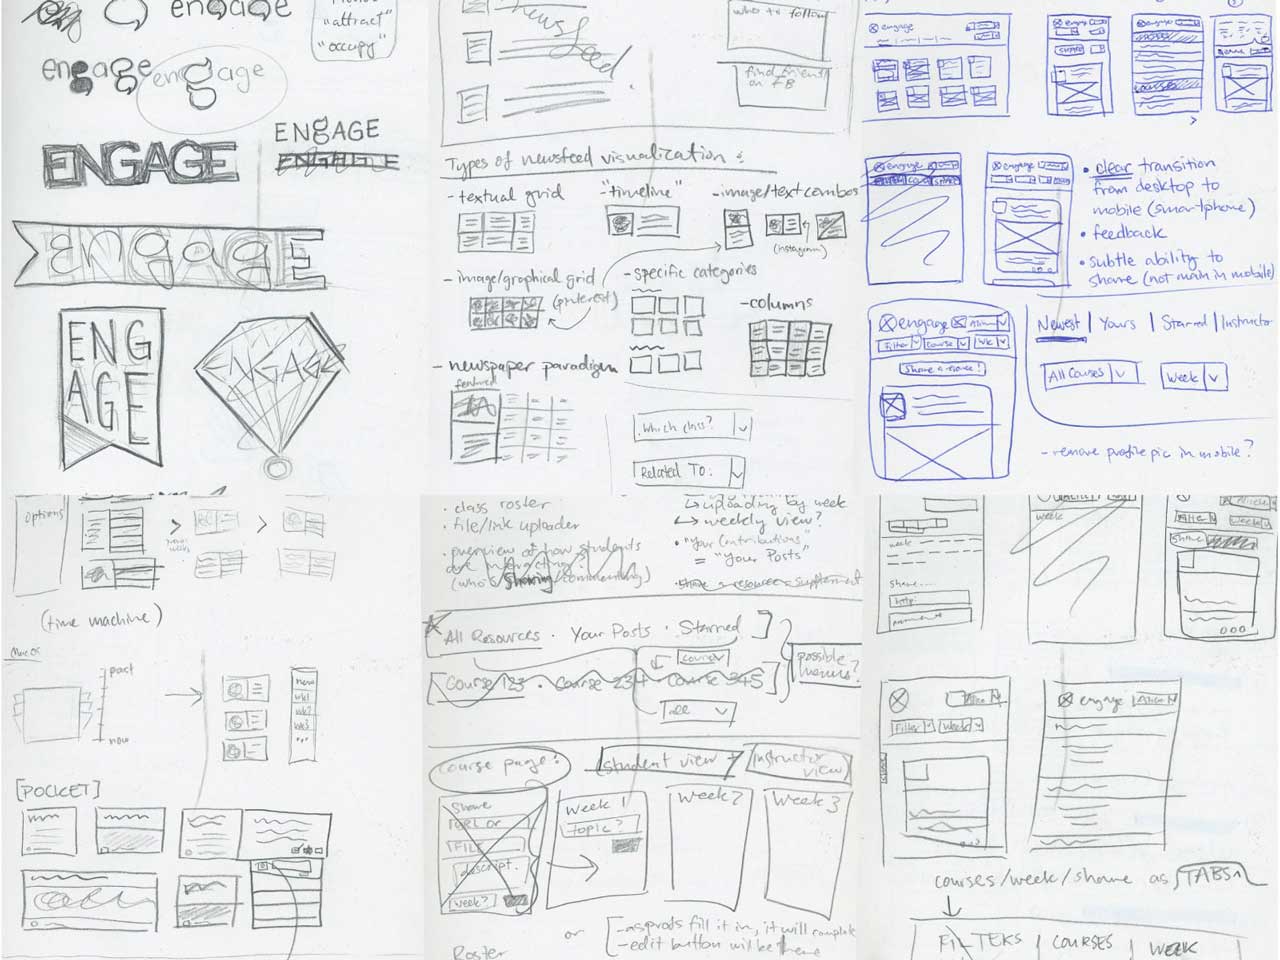 engage
"attract"
"occupy"
engage
engage
ENGAGE
ENGAGE
ENGAGE
ENGAGE
ENG
AGE
ENGAGE
newsfeed
who to follow
find friends
on FB
Types of newsfeed visualization:
- textual grid
- "timeline"
- image/text combos
(instagram)
- image/graphical grid
(pinterest)
- specific categories
- columns
- newspaper paradigm
featured
Which class?
Related To:
engage
engage
engage
share
engage
engage
• clear transition
from desktop to
mobile (smartphone)
• feedback
• subtle ability to
share (not main in mobile)
engage
Filter
Course
Wk
Newest | Yours | Starred | Instructor
All Courses
Week
- remove profile pic in mobile?
Options
(time machine)
Mac OS
past
now
new
wk1
wk2
wk3
[POCKET]
• class roster
• file/link uploader
• overview of how students
are interacting
(who's sharing/commenting)
uploading by week
weekly view?
• "Your Contributions"
= "Your Posts"
share a resource = supplement
All Resources • Your Posts • Starred
course
Course 123 • Course 234 Course 345
possible
menus?
all
course page:
student view
instructor
view
Share
URL or
FILE
descript.
week?
Week 1
topic?
Week 2
Week 3
or
- as profs fill it in, it will complete
- edit button will be there
Roster
week
share...
http:
week
Alice
Filter
Week
share
Alice
Filter
Week
engage
Alice
courses/week/share as TABS
FILTERS | COURSES | WEEK